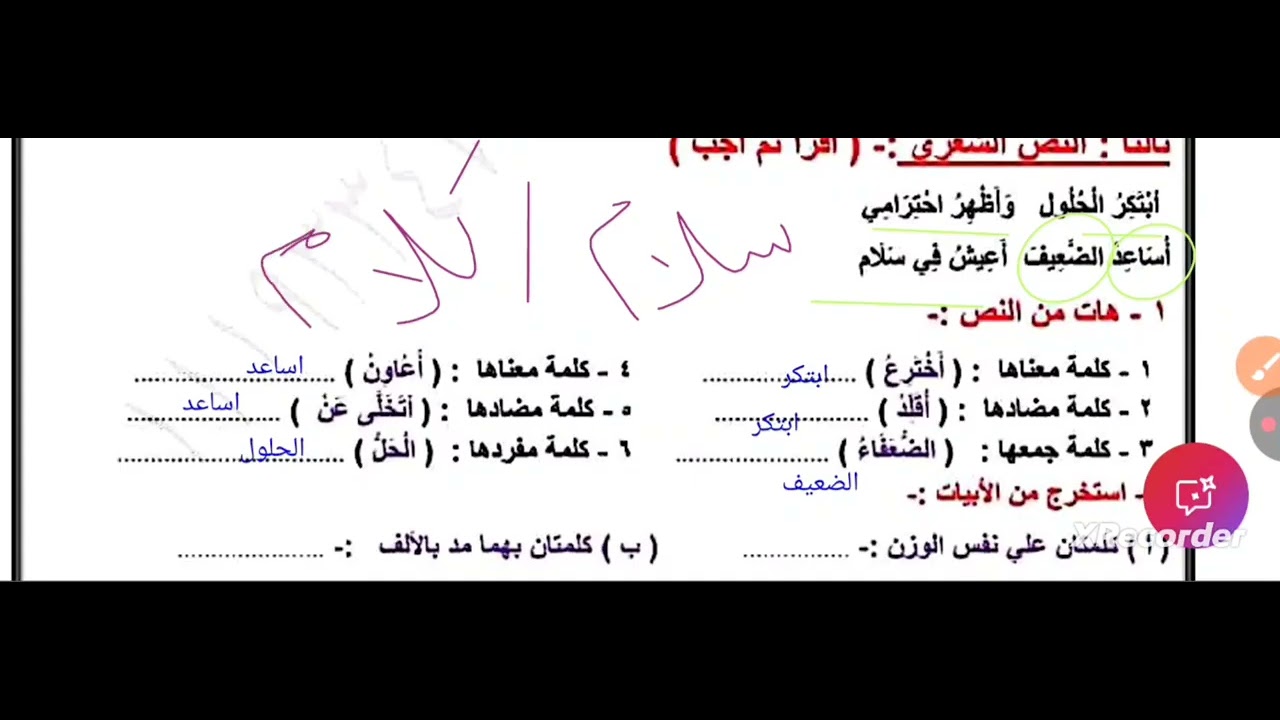 ثالثا : النص الشعرى :- ( اقرأ ثم أجب )
أبْتَكِرُ الْحُلُولِ وَأُظْهِرُ احْتِرَامِي
أُسَاعِدَ الضَّعِيفَ أَعِيشُ فِي سَلَام
سلام كلام
١ - هات من النص :-
١ - كلمة معناها : ( أَخْتَرِعُ ) ابتكر ٤ - كلمة معناها : ( أُعَاوِنْ ) اساعد
٢ - كلمة مضادها : ( أُقَلِّدْ ) ابتكر ٥ - كلمة مضادها : ( أتَخَلَّى عَنْ ) اساعد
٣ - كلمة جمعها : ( الضُّعَفَاءُ ) الضعيف ٦ - كلمة مفردها : ( الْحَلُّ ) الحلول
- استخرج من الأبيات :-
( أ ) كلمتان علي نفس الوزن :- ............... ( ب ) كلمتان بهما مد بالألف :- ...............
XRecorder